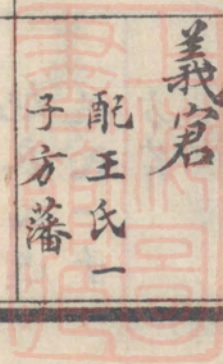 義窘
配王氏一
子方藩